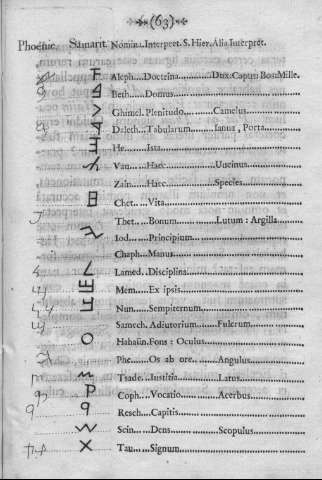 (63)
Phoenic. Samarit. Nomina. Interpret. S. Hier. Alia Interpret.
Aleph....Doctrina..........Dux: Caput: Bos: Mille.
Beth....Domus
Ghimel. Plenitudo...........Camelus
Daleth...Tabularum..........Ianua, Porta
He.......Ista
Vau.....Haec................Uncinus
Zain.....Haec...............Species
Chet....Vita
Thet....Bonum............Lutum: Argilla
Iod......Principium
Chaph...Manus
Lamed..Disciplina
Mem....Ex ipsis
Nun.....Sempiternum
Samech. Adiutorium.......Fulcrum
Hahain. Fons: Oculus
Phe.....Os ab ore..........Angulus
Tsade...Iustitia............Latus
Coph....Vocatio............Acerbus
Resch...Capitis
Scin.....Dens..............Scopulus
Tau.....Signum